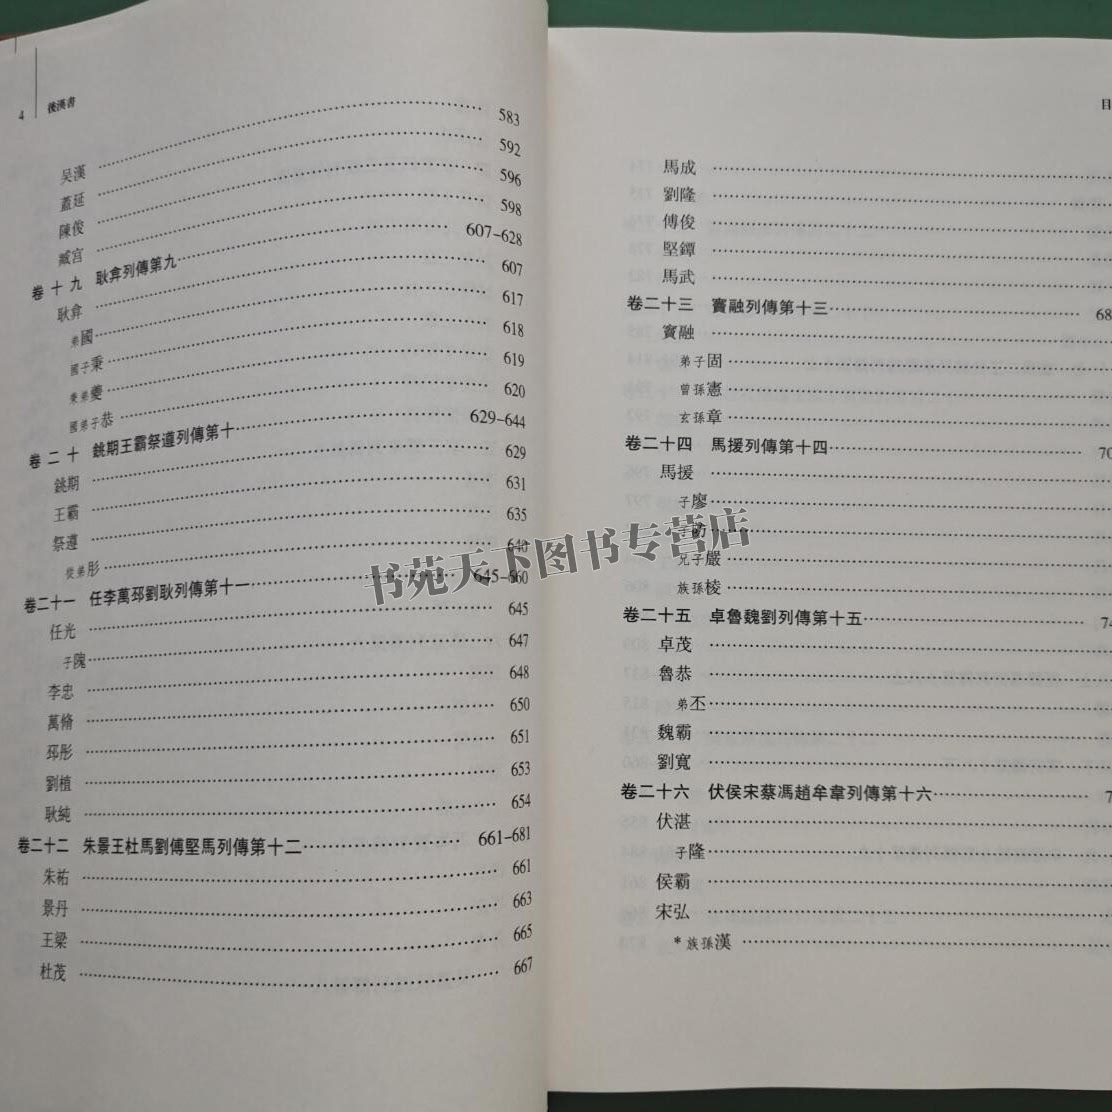 4 後漢書
吴漢 583
蓋延 592
陳俊 596
臧宫 598
卷十九 耿弇列傳第九 607-628
耿弇 607
弟國 617
國子秉 618
秉弟夔 619
國弟子恭 620
卷二十 銚期王霸祭遵列傳第十 629-644
銚期 629
王霸 631
祭遵 635
從弟肜 640
卷二十一 任李萬邳劉耿列傳第十一 645-660
任光 645
子隗 647
李忠 648
萬脩 650
邳彤 651
劉植 653
耿純 654
卷二十二 朱景王杜馬劉傅堅馬列傳第十二 661-681
朱祐 661
景丹 663
王梁 665
杜茂 667
目
馬成
劉隆
傅俊
堅鐔
馬武
卷二十三 竇融列傳第十三
竇融
弟子固
曾孫憲
玄孫章
卷二十四 馬援列傳第十四
馬援
子廖
子防
兄子嚴
族孫棱
卷二十五 卓魯魏劉列傳第十五
卓茂
魯恭
弟丕
魏霸
劉寬
卷二十六 伏侯宋蔡馮趙牟韋列傳第十六
伏湛
子隆
侯霸
宋弘
*族孫漢
书苑天下图书专营店